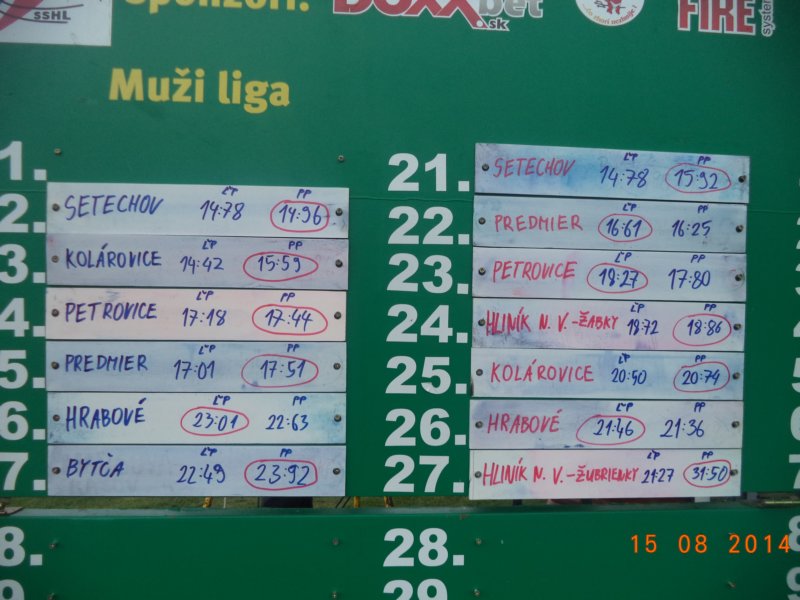 SSHL
Sponzori:
DOXXbet
.sk
FIRE
system
Muži liga
1.
2. SETECHOV ĽP 14:78 PP 14:96
3. KOLÁROVICE ĽP 14:42 PP 15:59
4. PETROVICE ĽP 17:18 PP 17:44
5. PREDMIER ĽP 17:01 PP 17:51
6. HRABOVÉ ĽP 23:01 PP 22:63
7. BYTČA ĽP 22:49 PP 23:92
8.
9.
21. SETECHOV ĽP 14:78 PP 15:92
22. PREDMIER ĽP 16:61 PP 16:25
23. PETROVICE ĽP 18:27 PP 17:80
24. HLINÍK N. V.-ŽABKY ĽP 18:72 PP 18:86
25. KOLÁROVICE ĽP 20:50 PP 20:74
26. HRABOVÉ ĽP 21:46 PP 21:36
27. HLINÍK N. V.-ŽUBRIENKY ĽP 21:27 PP 31:50
28.
29.
15 08 2014